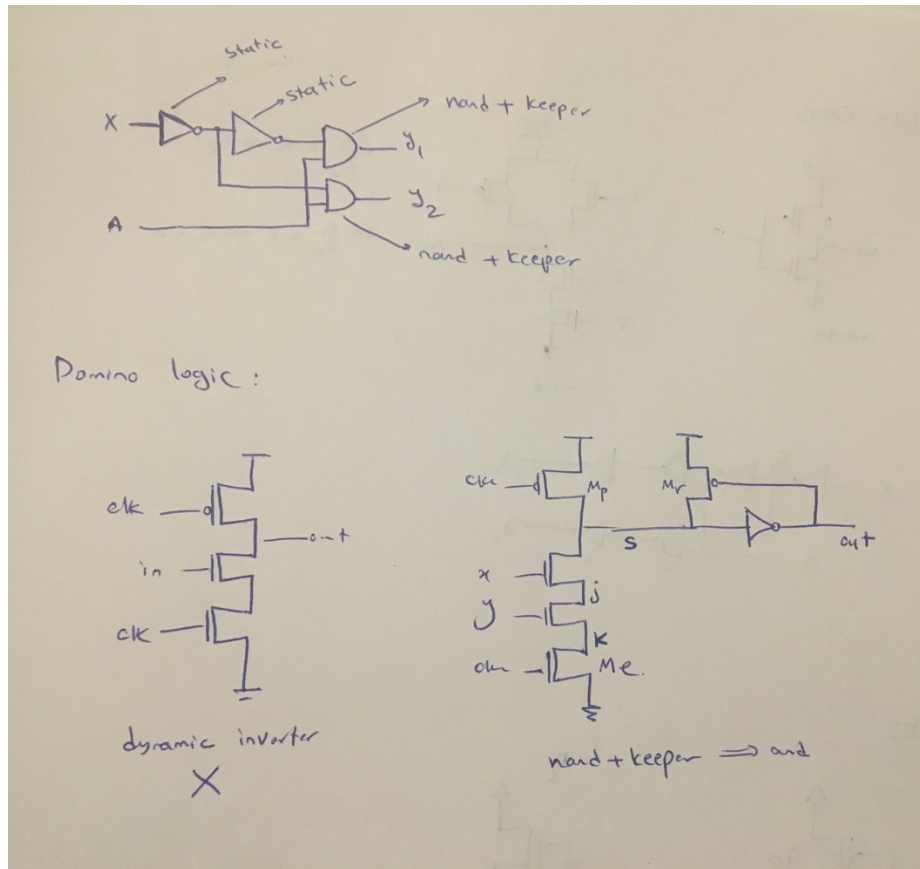 static
static
nand + keeper
X
y1
y2
A
nand + keeper
Domino logic :
clk
in
clk
out
dynamic inverter
X
clk
Mp
Mr
S
out
x
j
y
K
clk
Me.
nand + keeper ⇒ and